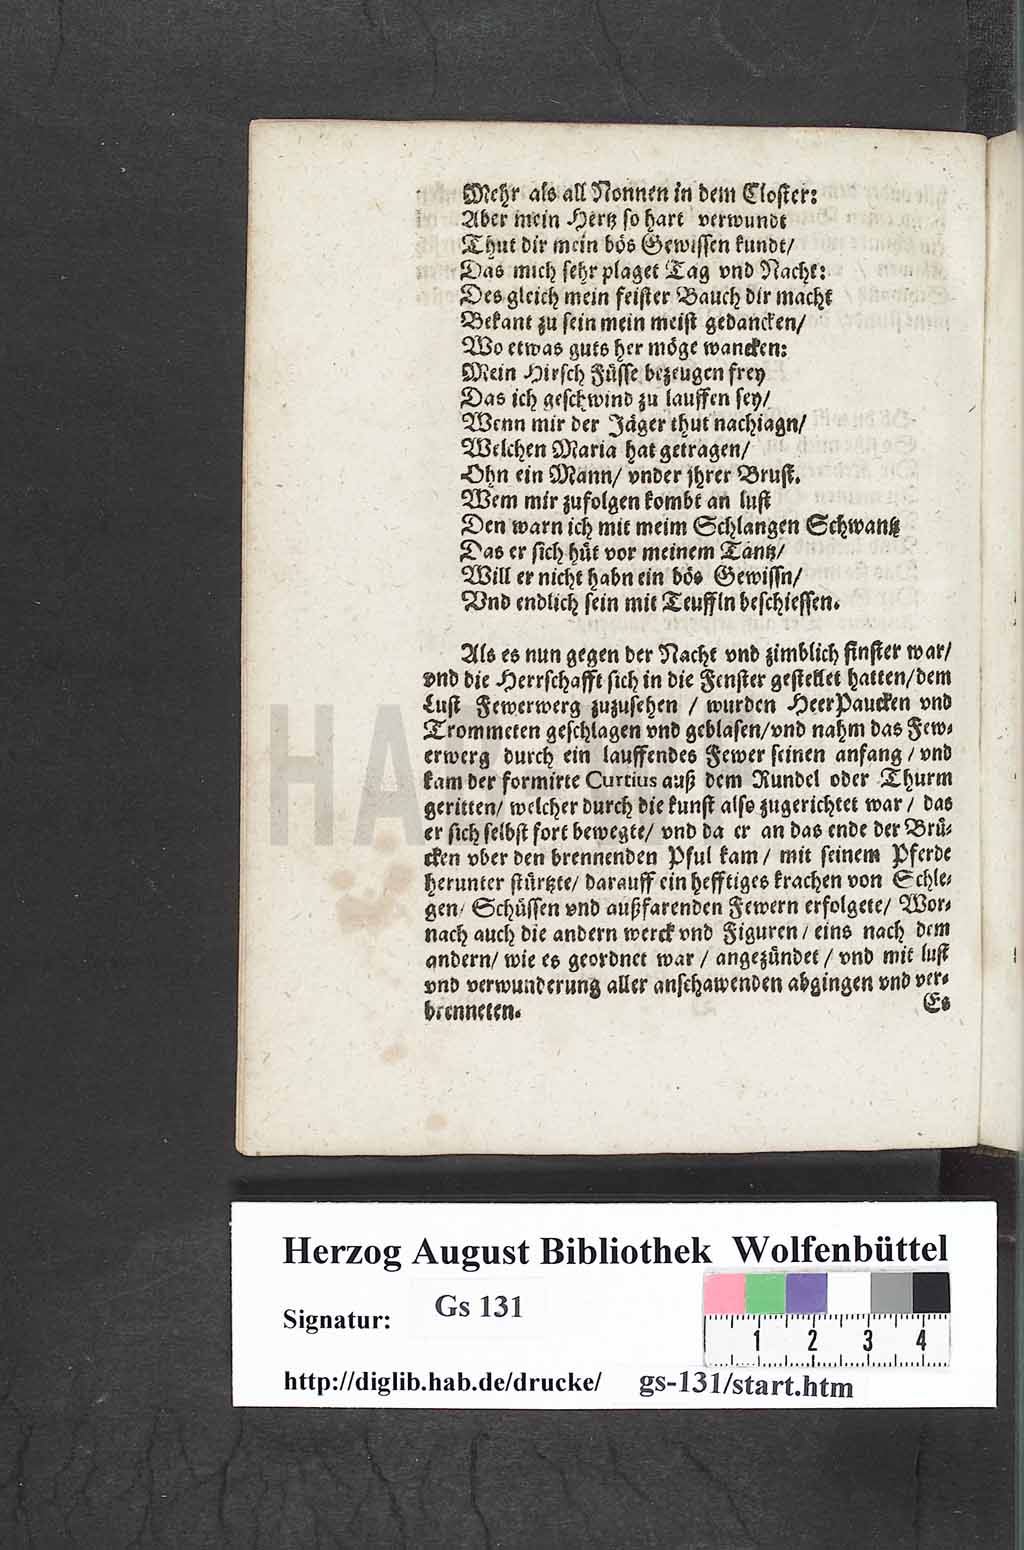 Mehr als all Nonnen in dem Closter:
Aber mein Hertz so hart verwundt
Thut dir mein bös Gewissen kundt/
Das mich sehr plaget Tag vnd Nacht:
Des gleich mein feister Bauch dir macht
Bekant zu sein mein meist gedancken/
Wo etwas guts her möge wancken:
Mein Hirsch Füsse bezeugen frey
Das ich geschwind zu lauffen sey/
Wenn mir der Jäger thut nachiagn/
Welchen Maria hat getragen/
Ohn ein Mann/ vnder jhrer Brust.
Wem mir zufolgen kombt an lust
Den warn ich mit meim Schlangen Schwantz
Das er sich hüt vor meinem Tantz/
Will er nicht habn ein bös Gewissn/
Vnd endlich sein mit Teuffln beschiessen.
Als es nun gegen der Nacht vnd zimblich finster war/
vnd die Herrschafft sich in die Fenster gestellet hatten/dem
Lust Fewerwerg zuzusehen / wurden HeerPaucken vnd
Trommeten geschlagen vnd geblasen/vnd nahm das Few-
erwerg durch ein lauffendes Fewer seinen anfang / vnd
kam der formirte Curtius auß dem Rundel oder Thurm
geritten/ welcher durch die kunst also zugerichtet war / das
er sich selbst fort bewegte/ vnd da er an das ende der Brü-
cken vber den brennenden Pful kam / mit seinem Pferde
herunter stürtzte/ darauff ein hefftiges krachen von Schle-
gen/ Schüssen vnd außfarenden Fewern erfolgete/ Wor-
nach auch die andern werck vnd Figuren / eins nach dem
andern/ wie es geordnet war / angezündet / vnd mit lust
vnd verwunderung aller anschawenden abgingen vnd ver-
brenneten.
Es
HA
Herzog August Bibliothek Wolfenbüttel
Signatur: Gs 131
1 2 3 4
http://diglib.hab.de/drucke/ gs-131/start.htm